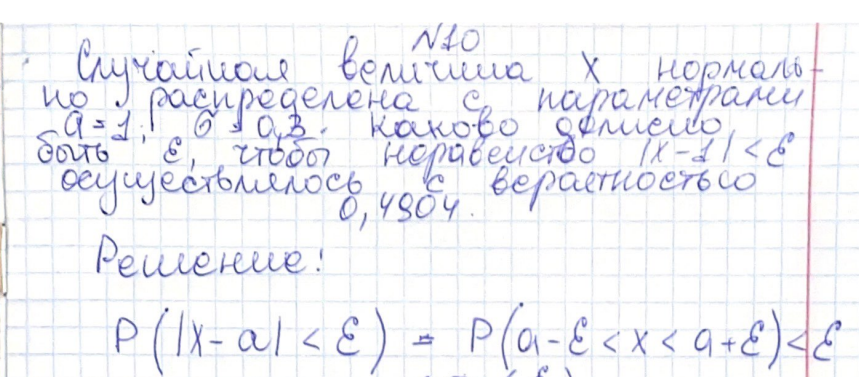 №10
Случайная величина X нормаль-
но распределена с параметрами
a=1, σ=0,3. каково должно
быть ε, чтобы неравенство |x-1|<ε
осуществлялось с вераетностью
0,4904.
Решение:
P(|X-a| < ε) = P(a-ε < x < a+ε) < ε